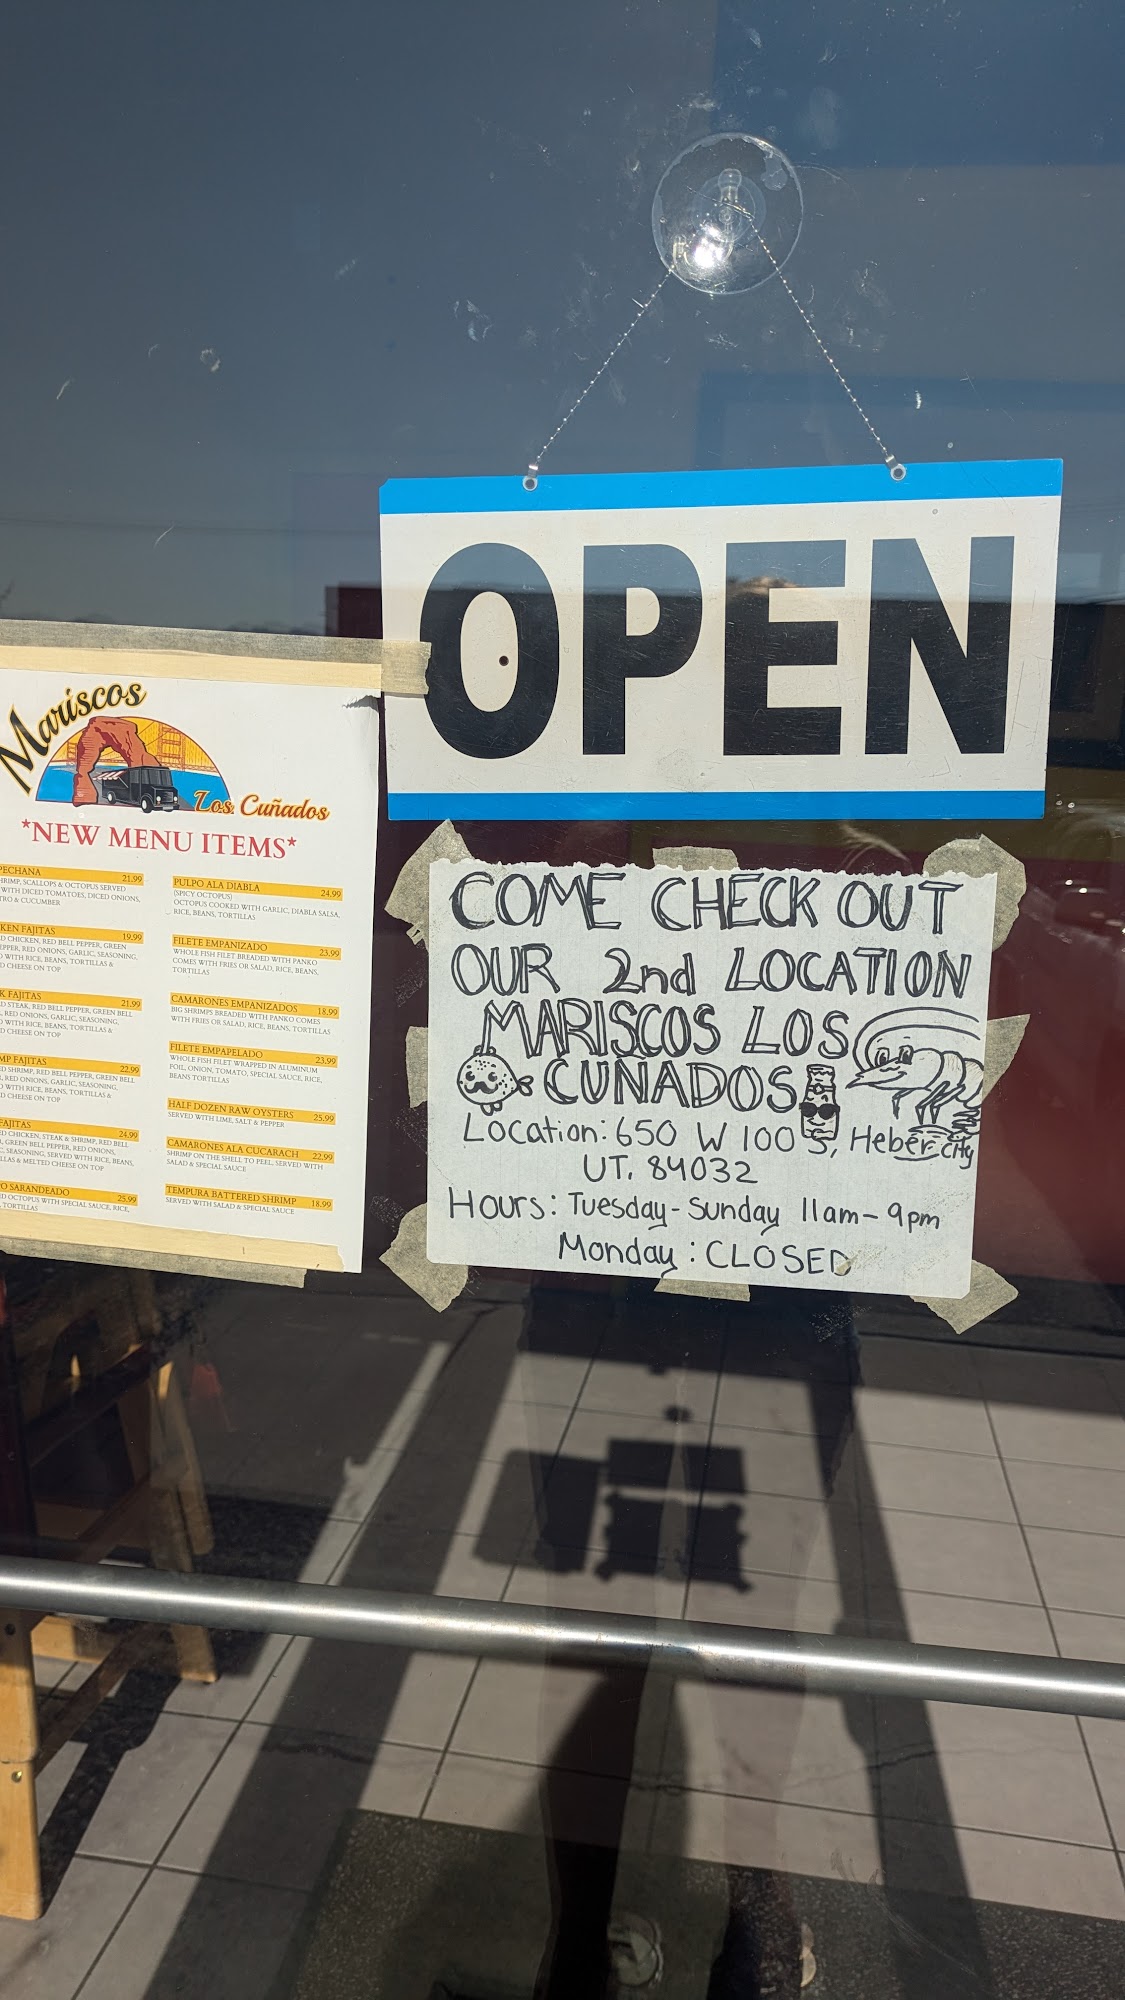 OPEN
Mariscos
Los Cuñados
*NEW MENU ITEMS*
21.99
SCALLOPS & OCTOPUS SERVED
WITH DICED TOMATOES, DICED ONIONS,
& CUCUMBER
FAJITAS 19.99
CHICKEN, RED BELL PEPPER, GREEN
RED ONIONS, GARLIC, SEASONING,
WITH RICE, BEANS, TORTILLAS &
CHEESE ON TOP
FAJITAS 21.99
STEAK, RED BELL PEPPER, GREEN BELL
RED ONIONS, GARLIC, SEASONING,
WITH RICE, BEANS, TORTILLAS &
CHEESE ON TOP
FAJITAS 22.99
SHRIMP, RED BELL PEPPER, GREEN BELL
RED ONIONS, GARLIC, SEASONING,
WITH RICE, BEANS, TORTILLAS &
CHEESE ON TOP
FAJITAS 24.99
CHICKEN, STEAK & SHRIMP, RED BELL
GREEN BELL PEPPER, RED ONIONS,
SEASONING, SERVED WITH RICE, BEANS,
& MELTED CHEESE ON TOP
SARANDEADO 25.99
OCTOPUS WITH SPECIAL SAUCE, RICE,
TORTILLAS
PULPO ALA DIABLA 24.99
(SPICY OCTOPUS)
OCTOPUS COOKED WITH GARLIC, DIABLA SALSA,
RICE, BEANS, TORTILLAS
FILETE EMPANIZADO 23.99
WHOLE FISH FILET BREADED WITH PANKO
COMES WITH FRIES OR SALAD, RICE, BEANS,
TORTILLAS
CAMARONES EMPANIZADOS 18.99
BIG SHRIMPS BREADED WITH PANKO COMES
WITH FRIES OR SALAD, RICE, BEANS, TORTILLAS
FILETE EMPAPELADO 23.99
WHOLE FISH FILET WRAPPED IN ALUMINUM
FOIL, ONION, TOMATO, SPECIAL SAUCE, RICE,
BEANS TORTILLAS
HALF DOZEN RAW OYSTERS 25.99
SERVED WITH LIME, SALT & PEPPER
CAMARONES ALA CUCARACH 22.99
SHRIMP ON THE SHELL TO PEEL, SERVED WITH
SALAD & SPECIAL SAUCE
TEMPURA BATTERED SHRIMP 18.99
SERVED WITH SALAD & SPECIAL SAUCE
COME CHECK OUT
OUR 2nd LOCATION
MARISCOS LOS
CUÑADOS
Location: 650 W 100 S, Heber city
UT. 84032
Hours: Tuesday-Sunday 11am-9pm
Monday: CLOSED